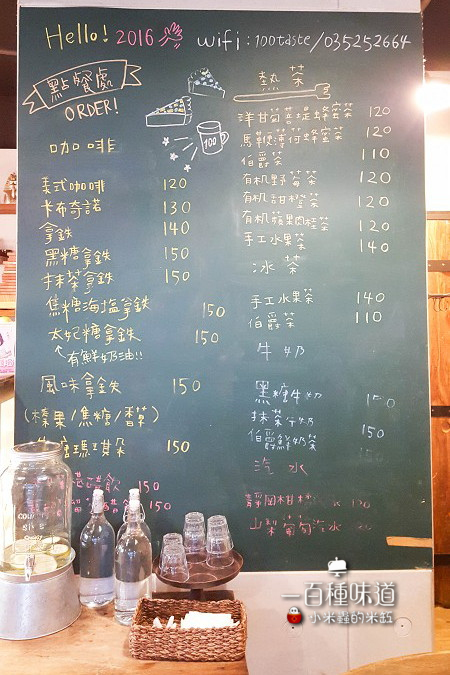 Hello! 2016 wifi: 100taste/035252664
點餐處
ORDER!
100
咖啡
美式咖啡 120
卡布奇諾 130
拿鉄 140
黑糖拿鉄 150
抹茶拿鉄 150
焦糖海塩拿鉄 150
太妃糖拿鉄 150
↖有鮮奶油!!
風味拿鉄 150
(榛果/焦糖/香草)
瑪琪朵 150
飲 150
150
熱茶
洋甘菊菩提蜂蜜茶 120
馬鞭薄荷蜂蜜茶 120
伯爵茶 110
有机野莓茶 120
有机甜橙茶 120
有机蘋果肉桂茶 120
手工水果茶 140
冰茶
手工水果茶 140
伯爵茶 110
牛奶
黑糖牛奶 150
抹茶牛奶 150
伯爵鮮奶茶 150
汽水
靜岡柑橘
山梨葡萄汽水
一百種味道
小米蟲的米缸